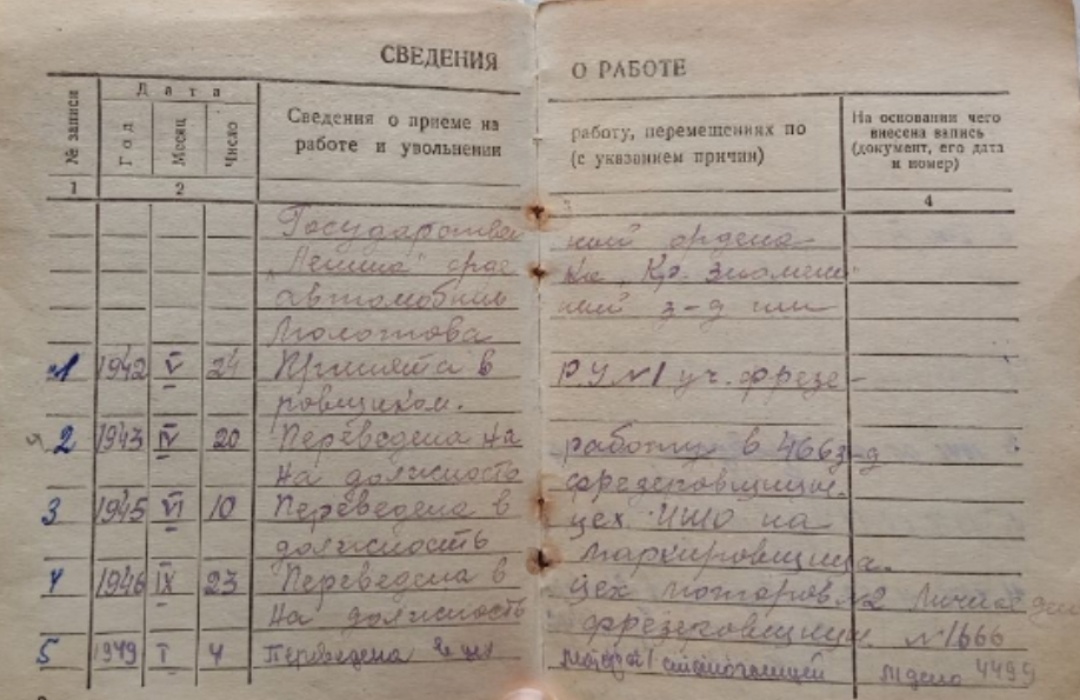 СВЕДЕНИЯ О РАБОТЕ
№ записи
Дата
Год
Месяц
Число
Сведения о приеме на работу, перемещениях по
работе и увольнении (с указанием причин)
На основании чего
внесена запись
(документ, его дата
и номер)
1 2 3 4
Государствен ный ордена
„Ленина" орде на „Кр. Знамени"
автомобиль ный з-д им
Молотова
1 1942 V 24 Принята в РУ №1 уч. фрезе-
ровщиком.
2 1943 IV 20 Переведена на работу в 466 з-д
на должность фрезеровщицы.
3 1945 VI 10 Переведена в цех ИШО на
должность маркировщица.
4 1946 IX 23 Переведена в цех моторов №2 Личное
на должность фрезеровщицы №1666
5 1949 I 4 Переведена в цех станочницей 4499